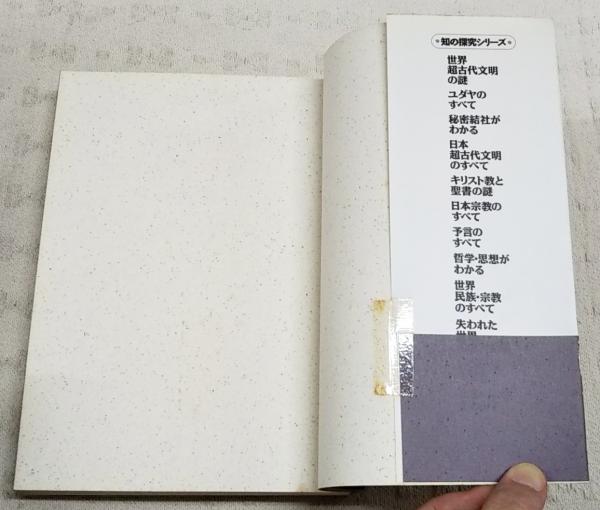 知の探究シリーズ
世界
超古代文明
の謎
ユダヤの
すべて
秘密結社が
わかる
日本
超古代文明
のすべて
キリスト教と
聖書の謎
日本宗教の
すべて
予言の
すべて
哲学・思想が
わかる
世界
民族・宗教
のすべて
失われた